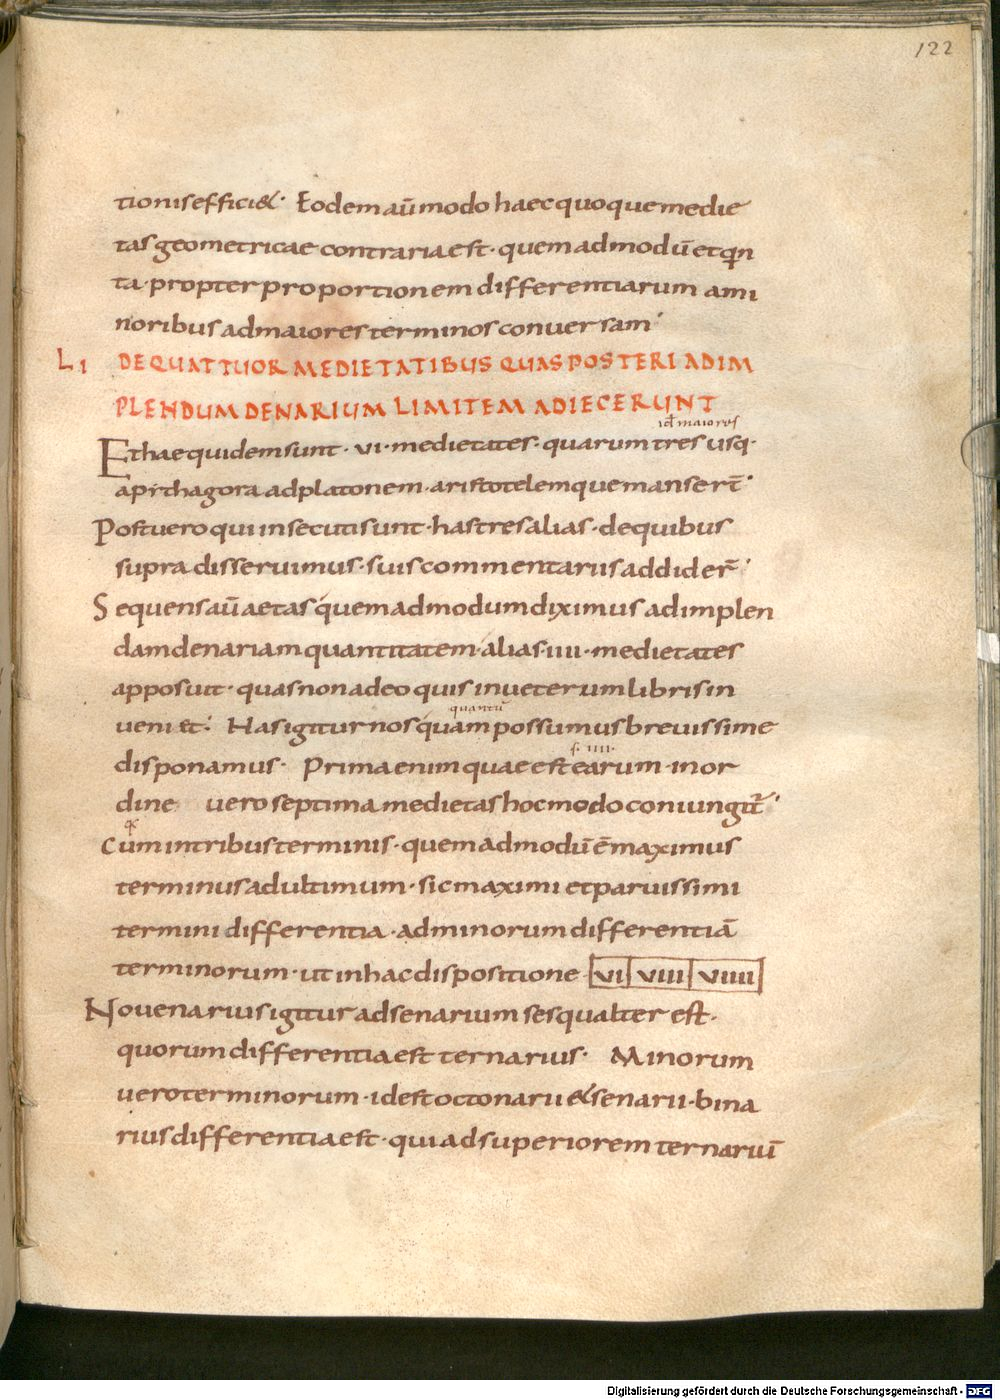 122
tionis effici&. Eodem aū modo haec quoque medie
tas geometricae contraria est. quemadmodū et qın
ta. propter proportionem differentiarum ami
noribus admaiores terminos conuersam.
LI DE QUATTUOR MEDIETATIBUS QUAS POSTERI AD IM
PLENDUM DENARIUM LIMITEM ADIECERUNT
id maiores
Et hae quidem sunt. vi. medietates. quarum tres usq.
apithagora adplatonem. aristotelemque manserт̄.
Post uero qui insecuti sunt. has tres alias. dequibus
supra disseruimus. suis commentariis addider̄.
Sequens aū aetas quemadmodum diximus adimplen
dam denariam quantitatem. alias. iiii. medietates
apposuit. quas non adeo quis in ueterum libris in
ueniet. Has igitur nos quam possumus breuissime
quantū
disponamus. Prima enim quae est earum. inor
s. iiii.
dine uero septima medietas hoc modo coniungit̄.
Cum intribus terminis. quemadmodū ē maximus
terminus adultimum. sic maximi et paruissimi
termini differentia. adminorum differentiā
terminorum. ut in hac dispositione VI VIII VIIII
Nouenarius igitur adsenarium sesqualter est.
quorum differentia est ternarius. Minorum
uero terminorum. id est octonarii & senarii. bina
rius differentia est. qui ad superiorem ternariū
Digitalisierung gefördert durch die Deutsche Forschungsgemeinschaft - DFG